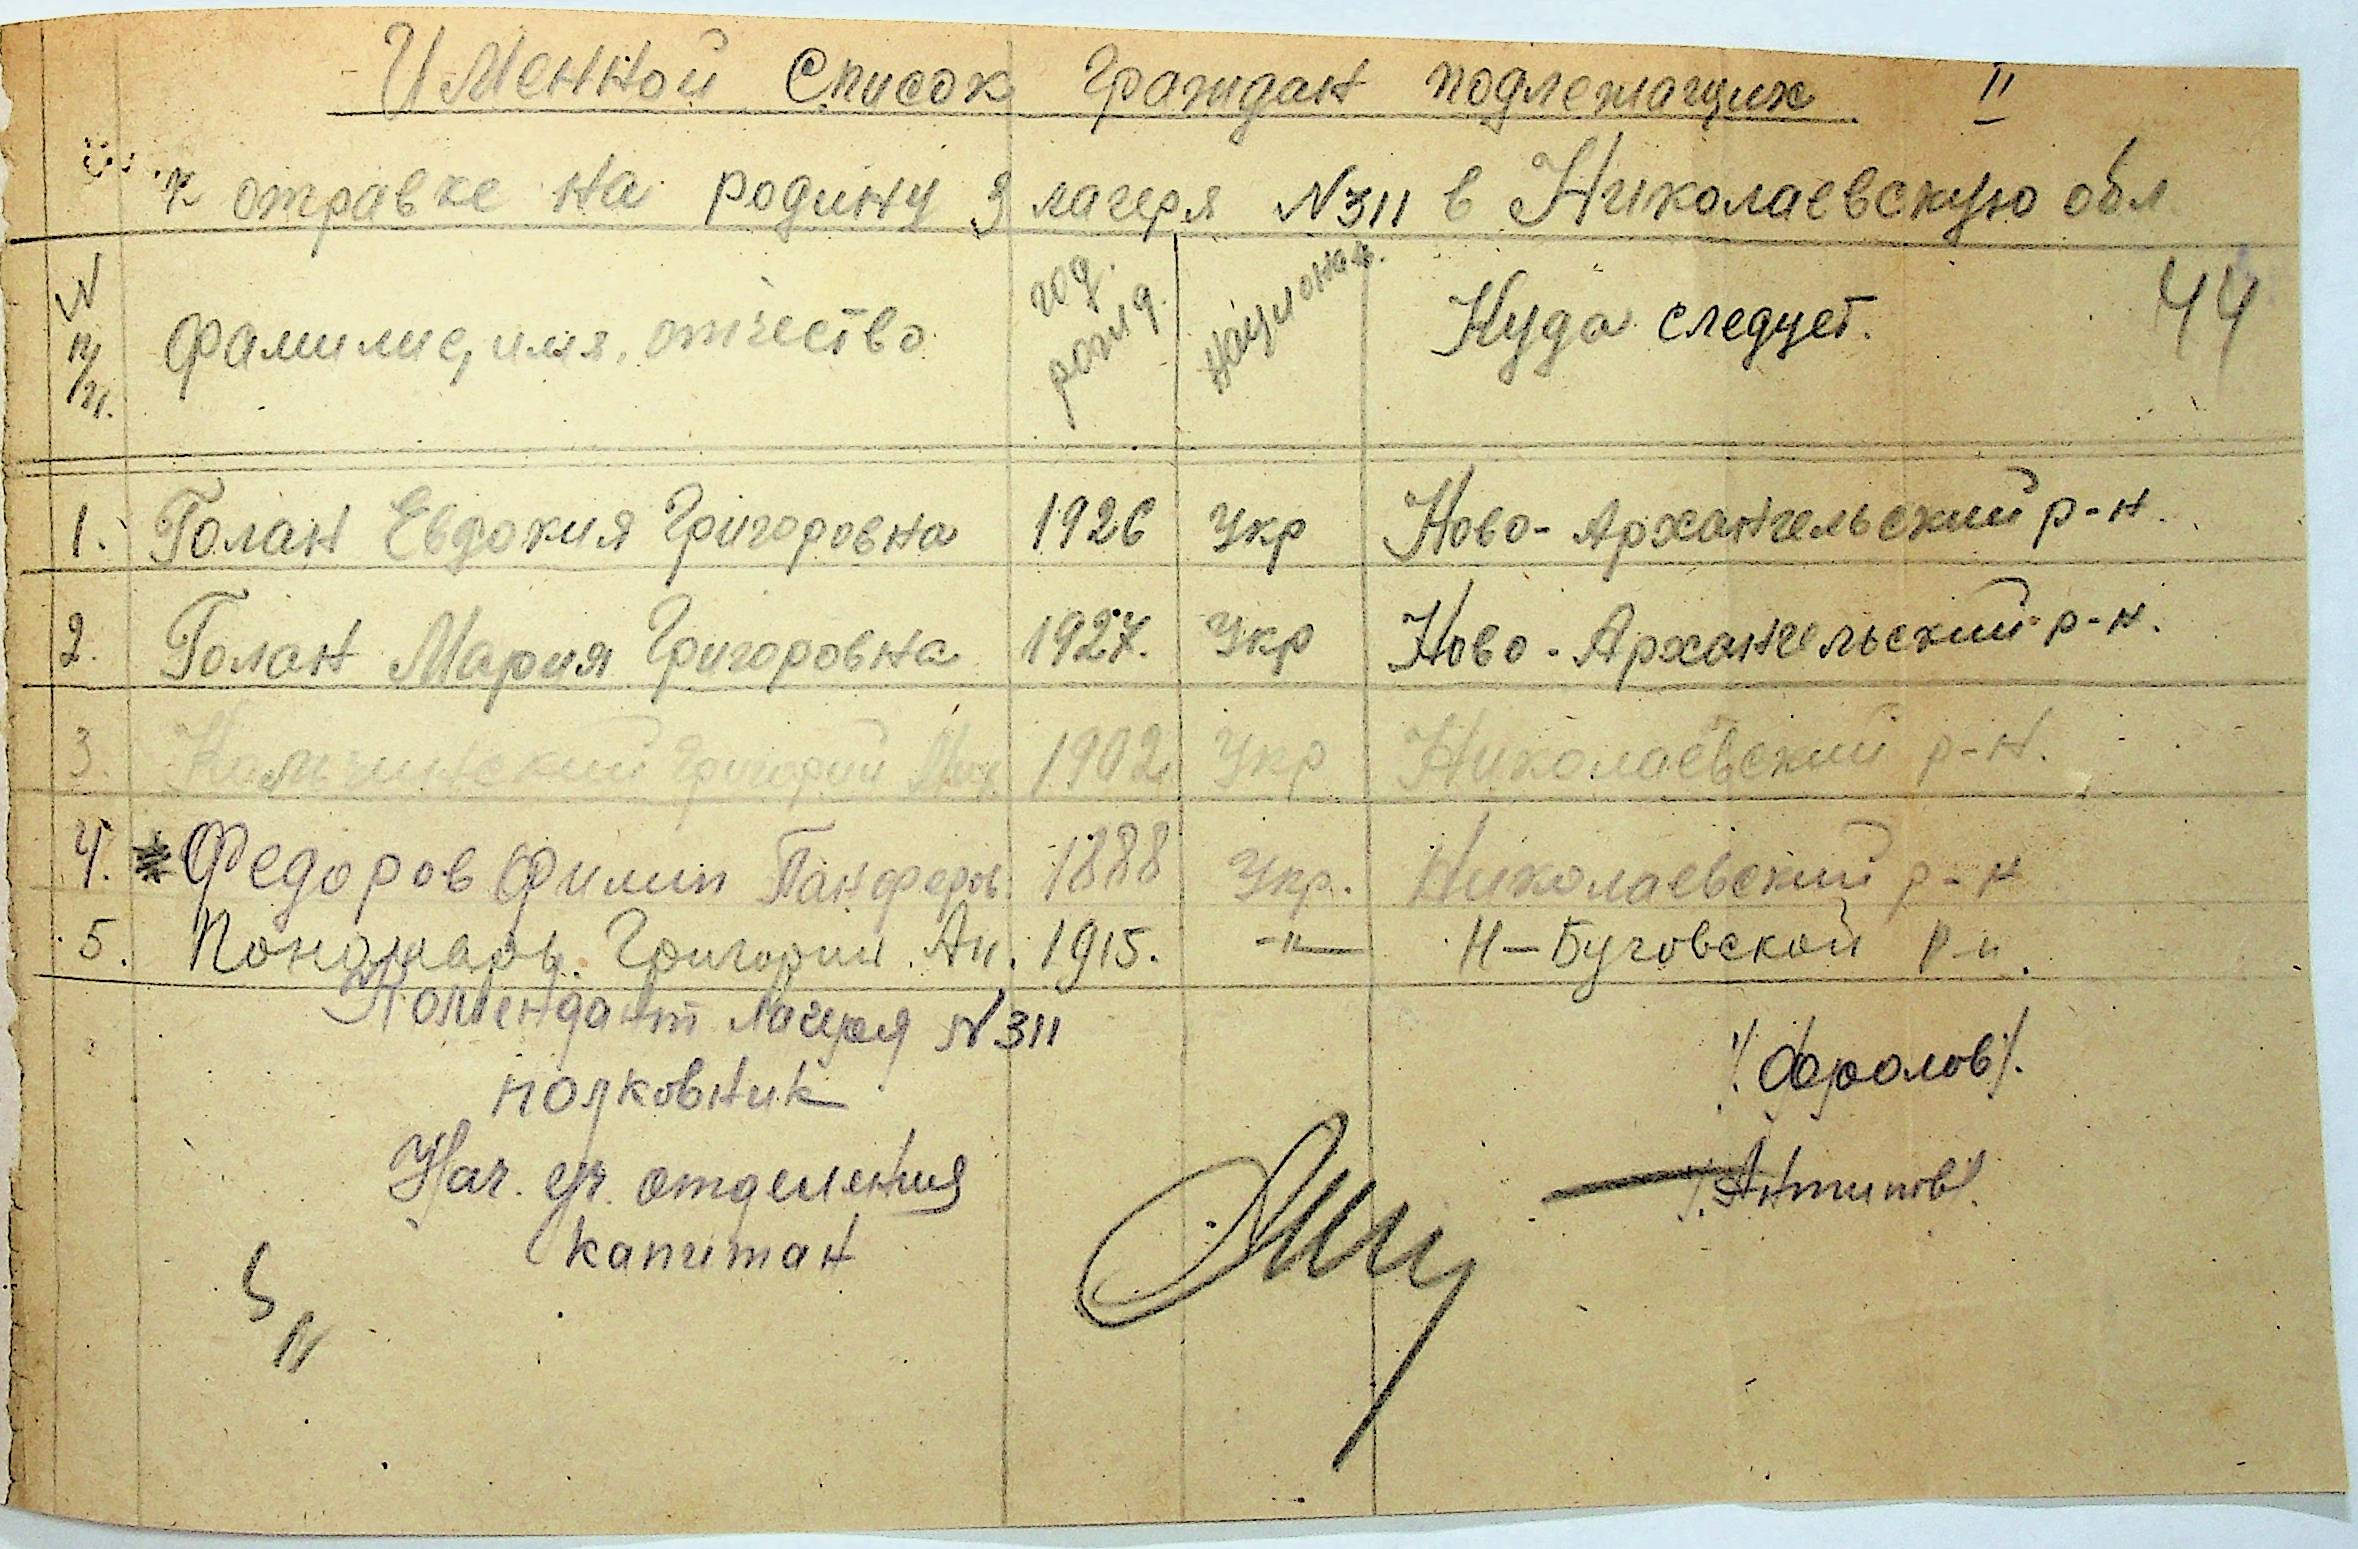 Именной список граждан подлежащих II
к отравке на родину з лагеря N311 в Николаевскую обл
N п/п. Фамилие, имя, отчество год рожд. национал. Куда следует. 44
1. Голан Евдокия Григоровна 1926 Укр Ново-Архангельский р-н.
2. Голан Мария Григоровна 1927. Укр Ново-Архангельский р-н.
3. Григорий Мих 1902 Укр Николаевский р-н.
4. Федоров Филип Панферов. 1888 Укр. Николаевский р-н
5. Пономарь. Григорий. Ан. 1915. -"- Н-Буговской р-н.
Комендант лагеря N311
полковник /Фролов/.
Нач. уч. отделения /Антипов/.
капитан